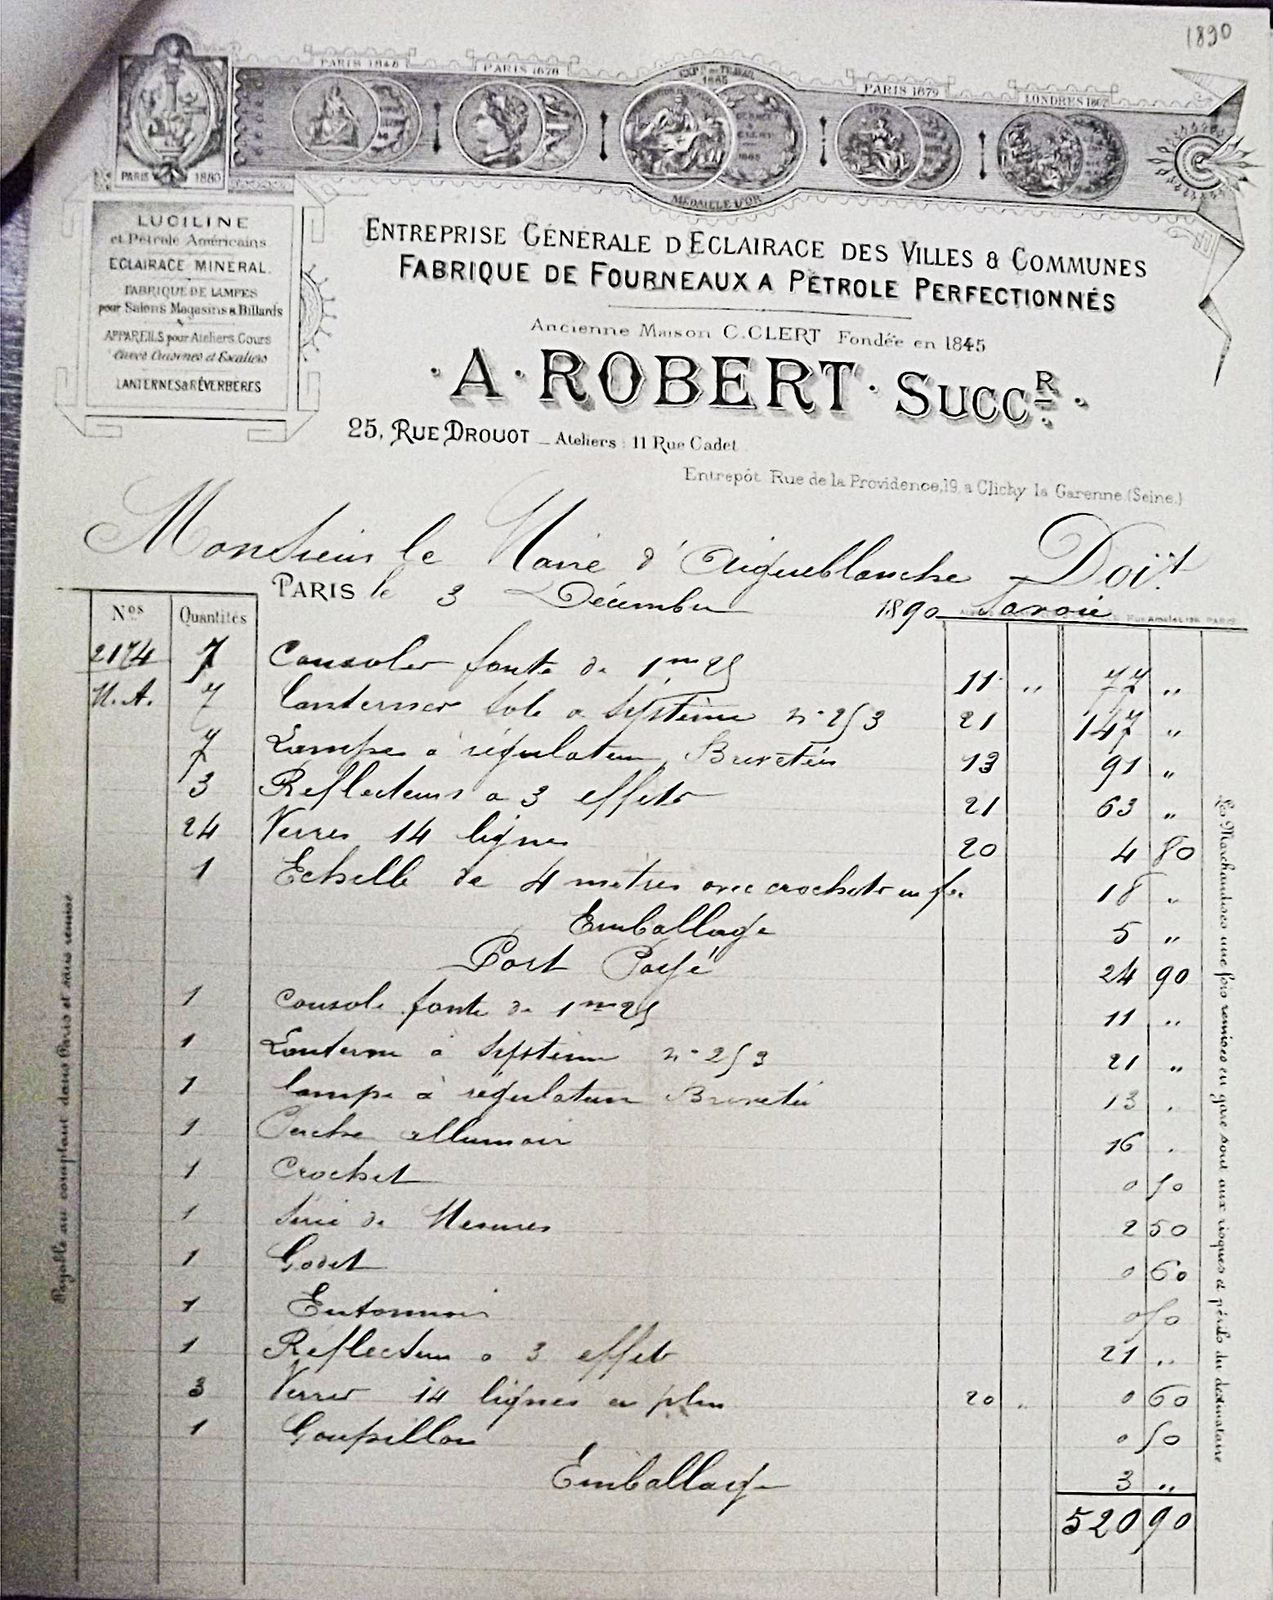 1890
PARIS 1848
PARIS 1878
EXPON DU TRAVAIL
1885
PARIS 1879
LONDRES 1862
PARIS 1880
MÉDAILLE D'OR
LUCILINE
et Pétrole Américains
ECLAIRAGE MINERAL
FABRIQUE DE LAMPES
pour Salons Magasins & Billards
APPAREILS pour Ateliers Cours
Caves Cuisines et Escaliers
LANTERNES & RÉVERBÈRES
ENTREPRISE GÉNÉRALE D'ECLAIRAGE DES VILLES & COMMUNES
FABRIQUE DE FOURNEAUX A PÉTROLE PERFECTIONNÉS
Ancienne Maison C. CLERT Fondée en 1845
A. ROBERT SUCCR
25, RUE DROUOT _ Ateliers : 11 Rue Cadet
Entrepôt Rue de la Providence, 19, a Clichy la Garenne (Seine)
Monsieur le Maire d'Aigueblanche Doit
PARIS le 3 Décembre 1890 Savoie
Nos Quantités
2174 7 Consoles fonte de 1m25 11 " 77 "
N.A. 7 Lanternes à Septime n° 253 21 147 "
7 Lampes à régulateur Brevetées 13 91 "
3 Reflecteurs a 3 effets 21 63 "
24 Verres 14 lignes 20 4 80
1 Echelle de 4 metres avec crochets en fer 18 "
Emballage 5 "
Port Payé 24 90
1 Console fonte de 1m25 11 "
1 Lanterne à Septime n° 253 21 "
1 Lampe à régulateur Brevetée 13 "
1 Perche allumoir 16 "
1 Crochet 0 50
1 Serie de Mesures 2 50
1 Godet 0 60
1 Entonnoir 0 50
1 Réflecteur a 3 effets 21 "
3 Verres 14 lignes en plus 20 " 0 60
1 Goupillon 0 50
Emballage 3 "
520 90
Payable au comptant dans Paris et sans remise
Les Marchandises une fois remises en gare sont aux risques et périls du destinataire